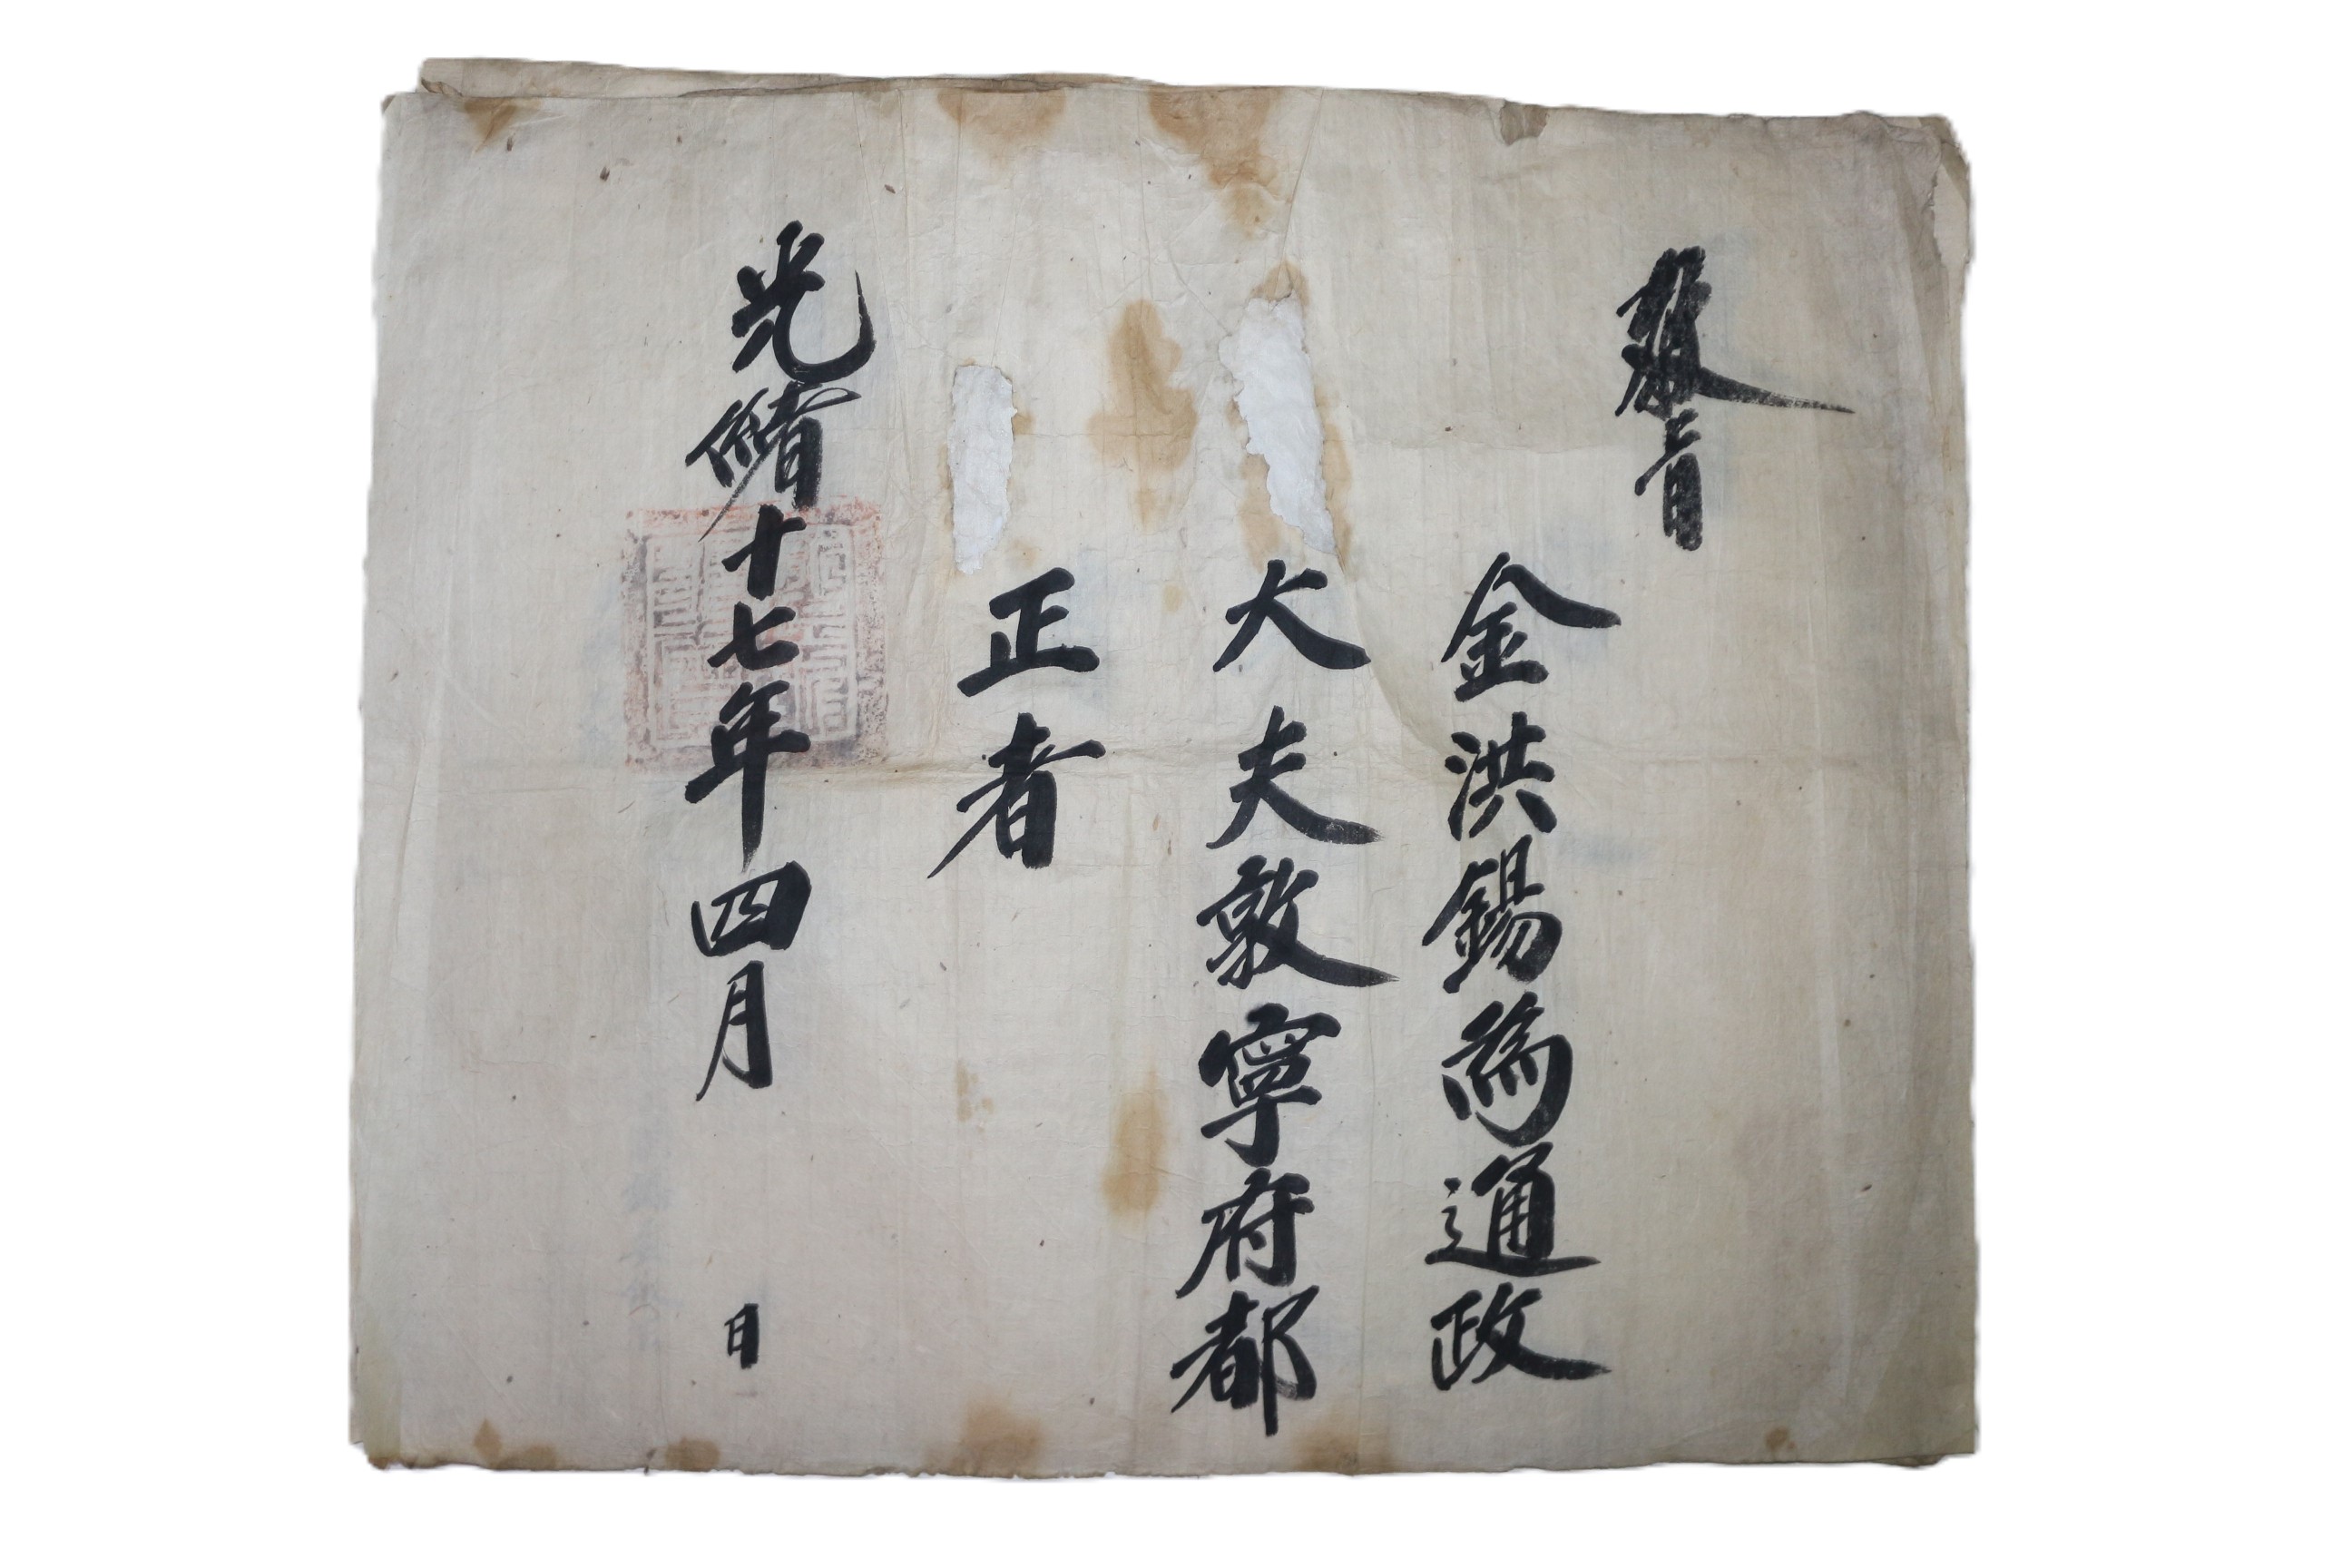 教旨
金洪錫為通政
大夫敦寧府都
正者
光緖十七年四月 日